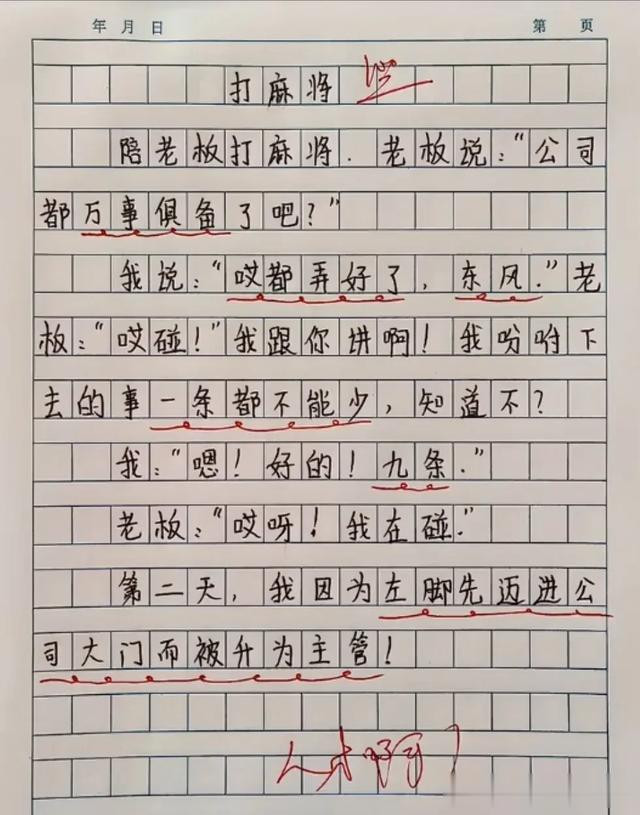 年 月 日 第 页
打麻将
陪老板打麻将.老板说:“公司
都万事俱备了吧?”
我说:“哎都弄好了,东风.”老
板:“哎碰!”我跟你讲啊!我吩咐下
去的事一条都不能少,知道不?
我:“嗯!好的!九条.”
老板:“哎呀!我在碰.”
第二天,我因为左脚先迈进公
司大门而被升为主管!
人才啊!